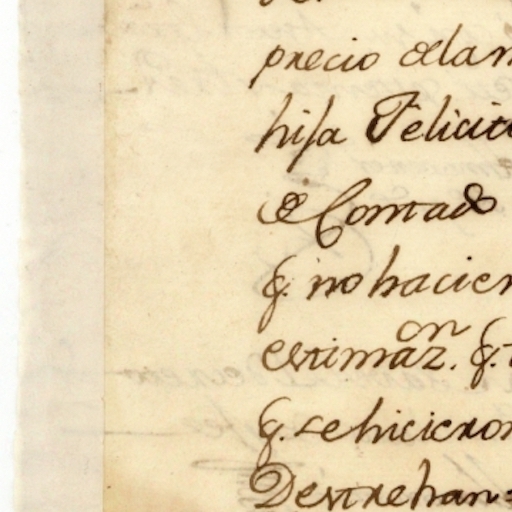 precio dela m
hija Felicit
de Contado
q. no hacien
estimaz.on q.
q. se hicieron
Destrehan